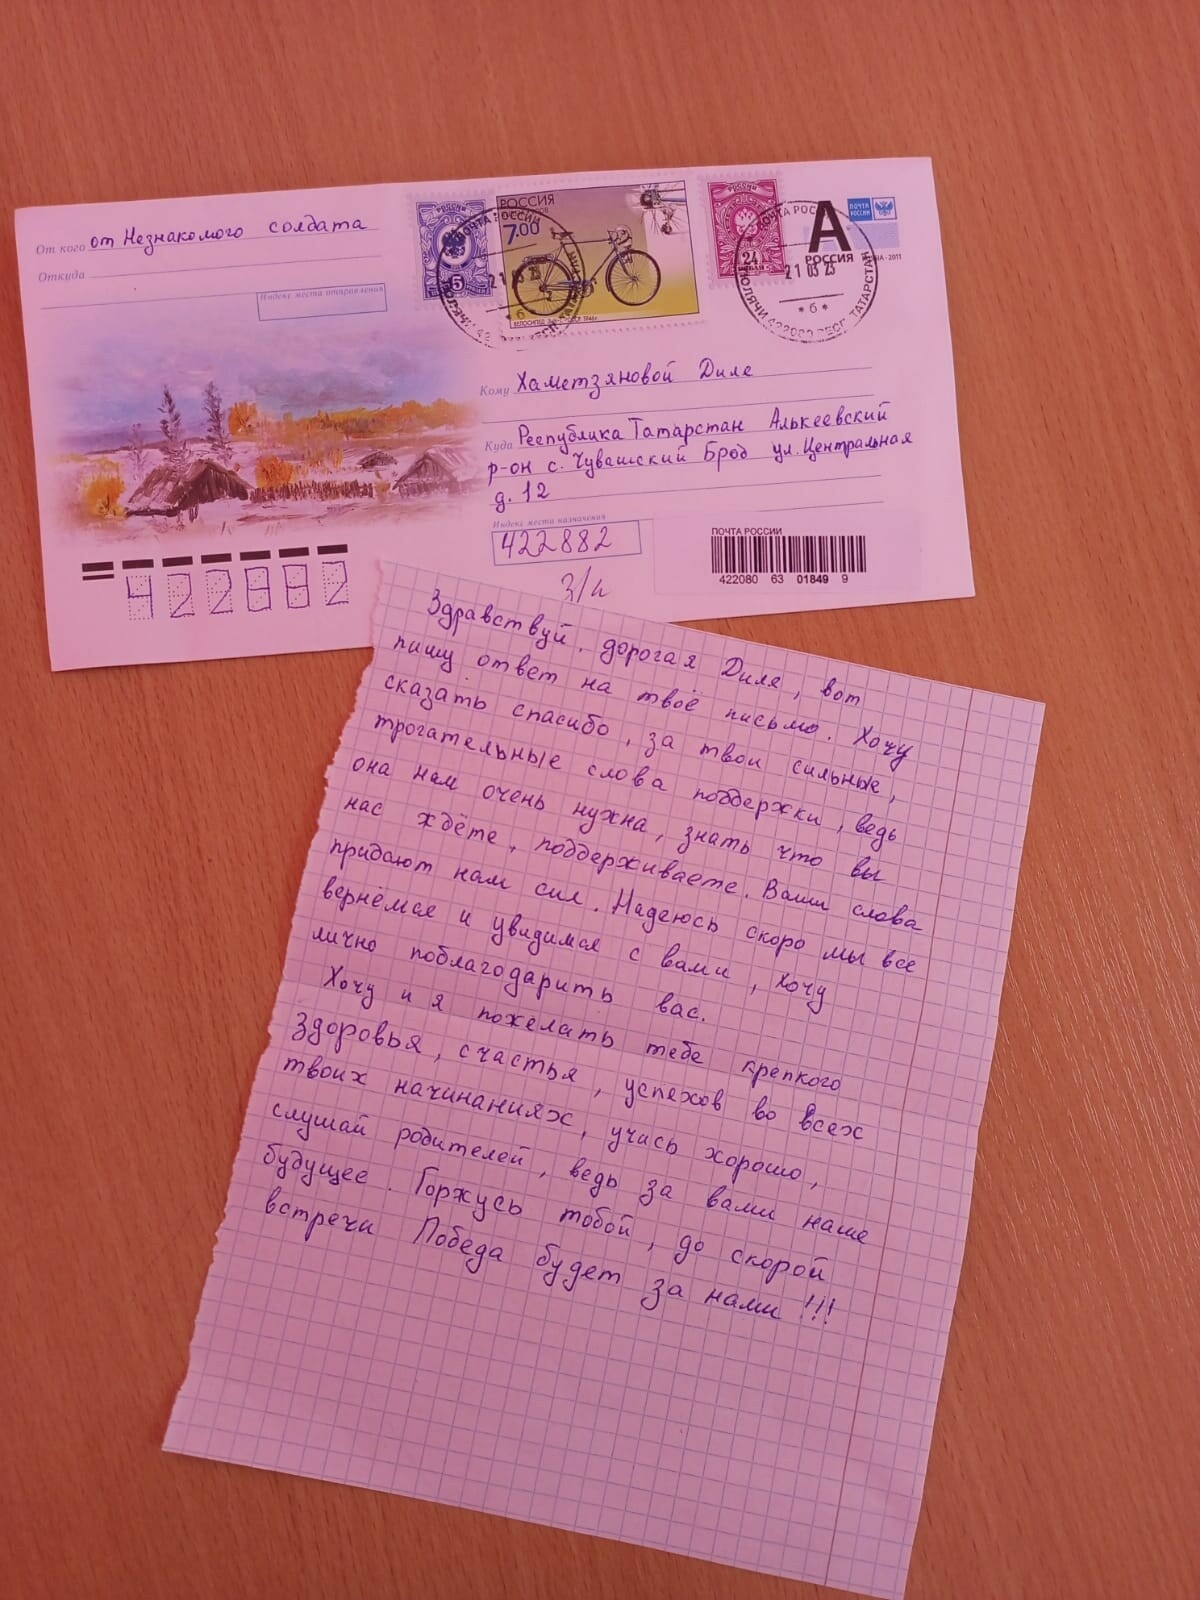 От кого от Незнакомого солдата
Откуда
Индекс места отправления
РОССИЯ
5
РОССИЯ
7.00
РОССИЯ
24
А
РОССИЯ
ПОЧТА РОССИИ
ПОЧТА РОССИИ
21 03 23
* б *
ПОЧТА РОССИИ
21 03 23
* б *
Кому Хаметзяновой Диле
Куда Республика Татарстан Алькеевский
р-он с. Чувашский Брод ул. Центральная
д. 12
Индекс места назначения
422882
З/п
422882
ПОЧТА РОССИИ
422080 63 01849 9
Здравствуй, дорогая Диля, вот
пишу ответ на твоё письмо. Хочу
сказать спасибо, за твои сильные,
трогательные слова поддержки, ведь
она нам очень нужна, знать что вы
нас ждёте, поддерживаете. Ваши слова
придают нам сил. Надеюсь скоро мы все
вернёмся и увидимся с вами, хочу
лично поблагодарить вас.
Хочу и я пожелать тебе крепкого
здоровья, счастья, успехов во всех
твоих начинаниях, учись хорошо,
слушай родителей, ведь за вами наше
будущее. Горжусь тобой, до скорой
встречи Победа будет за нами!!!